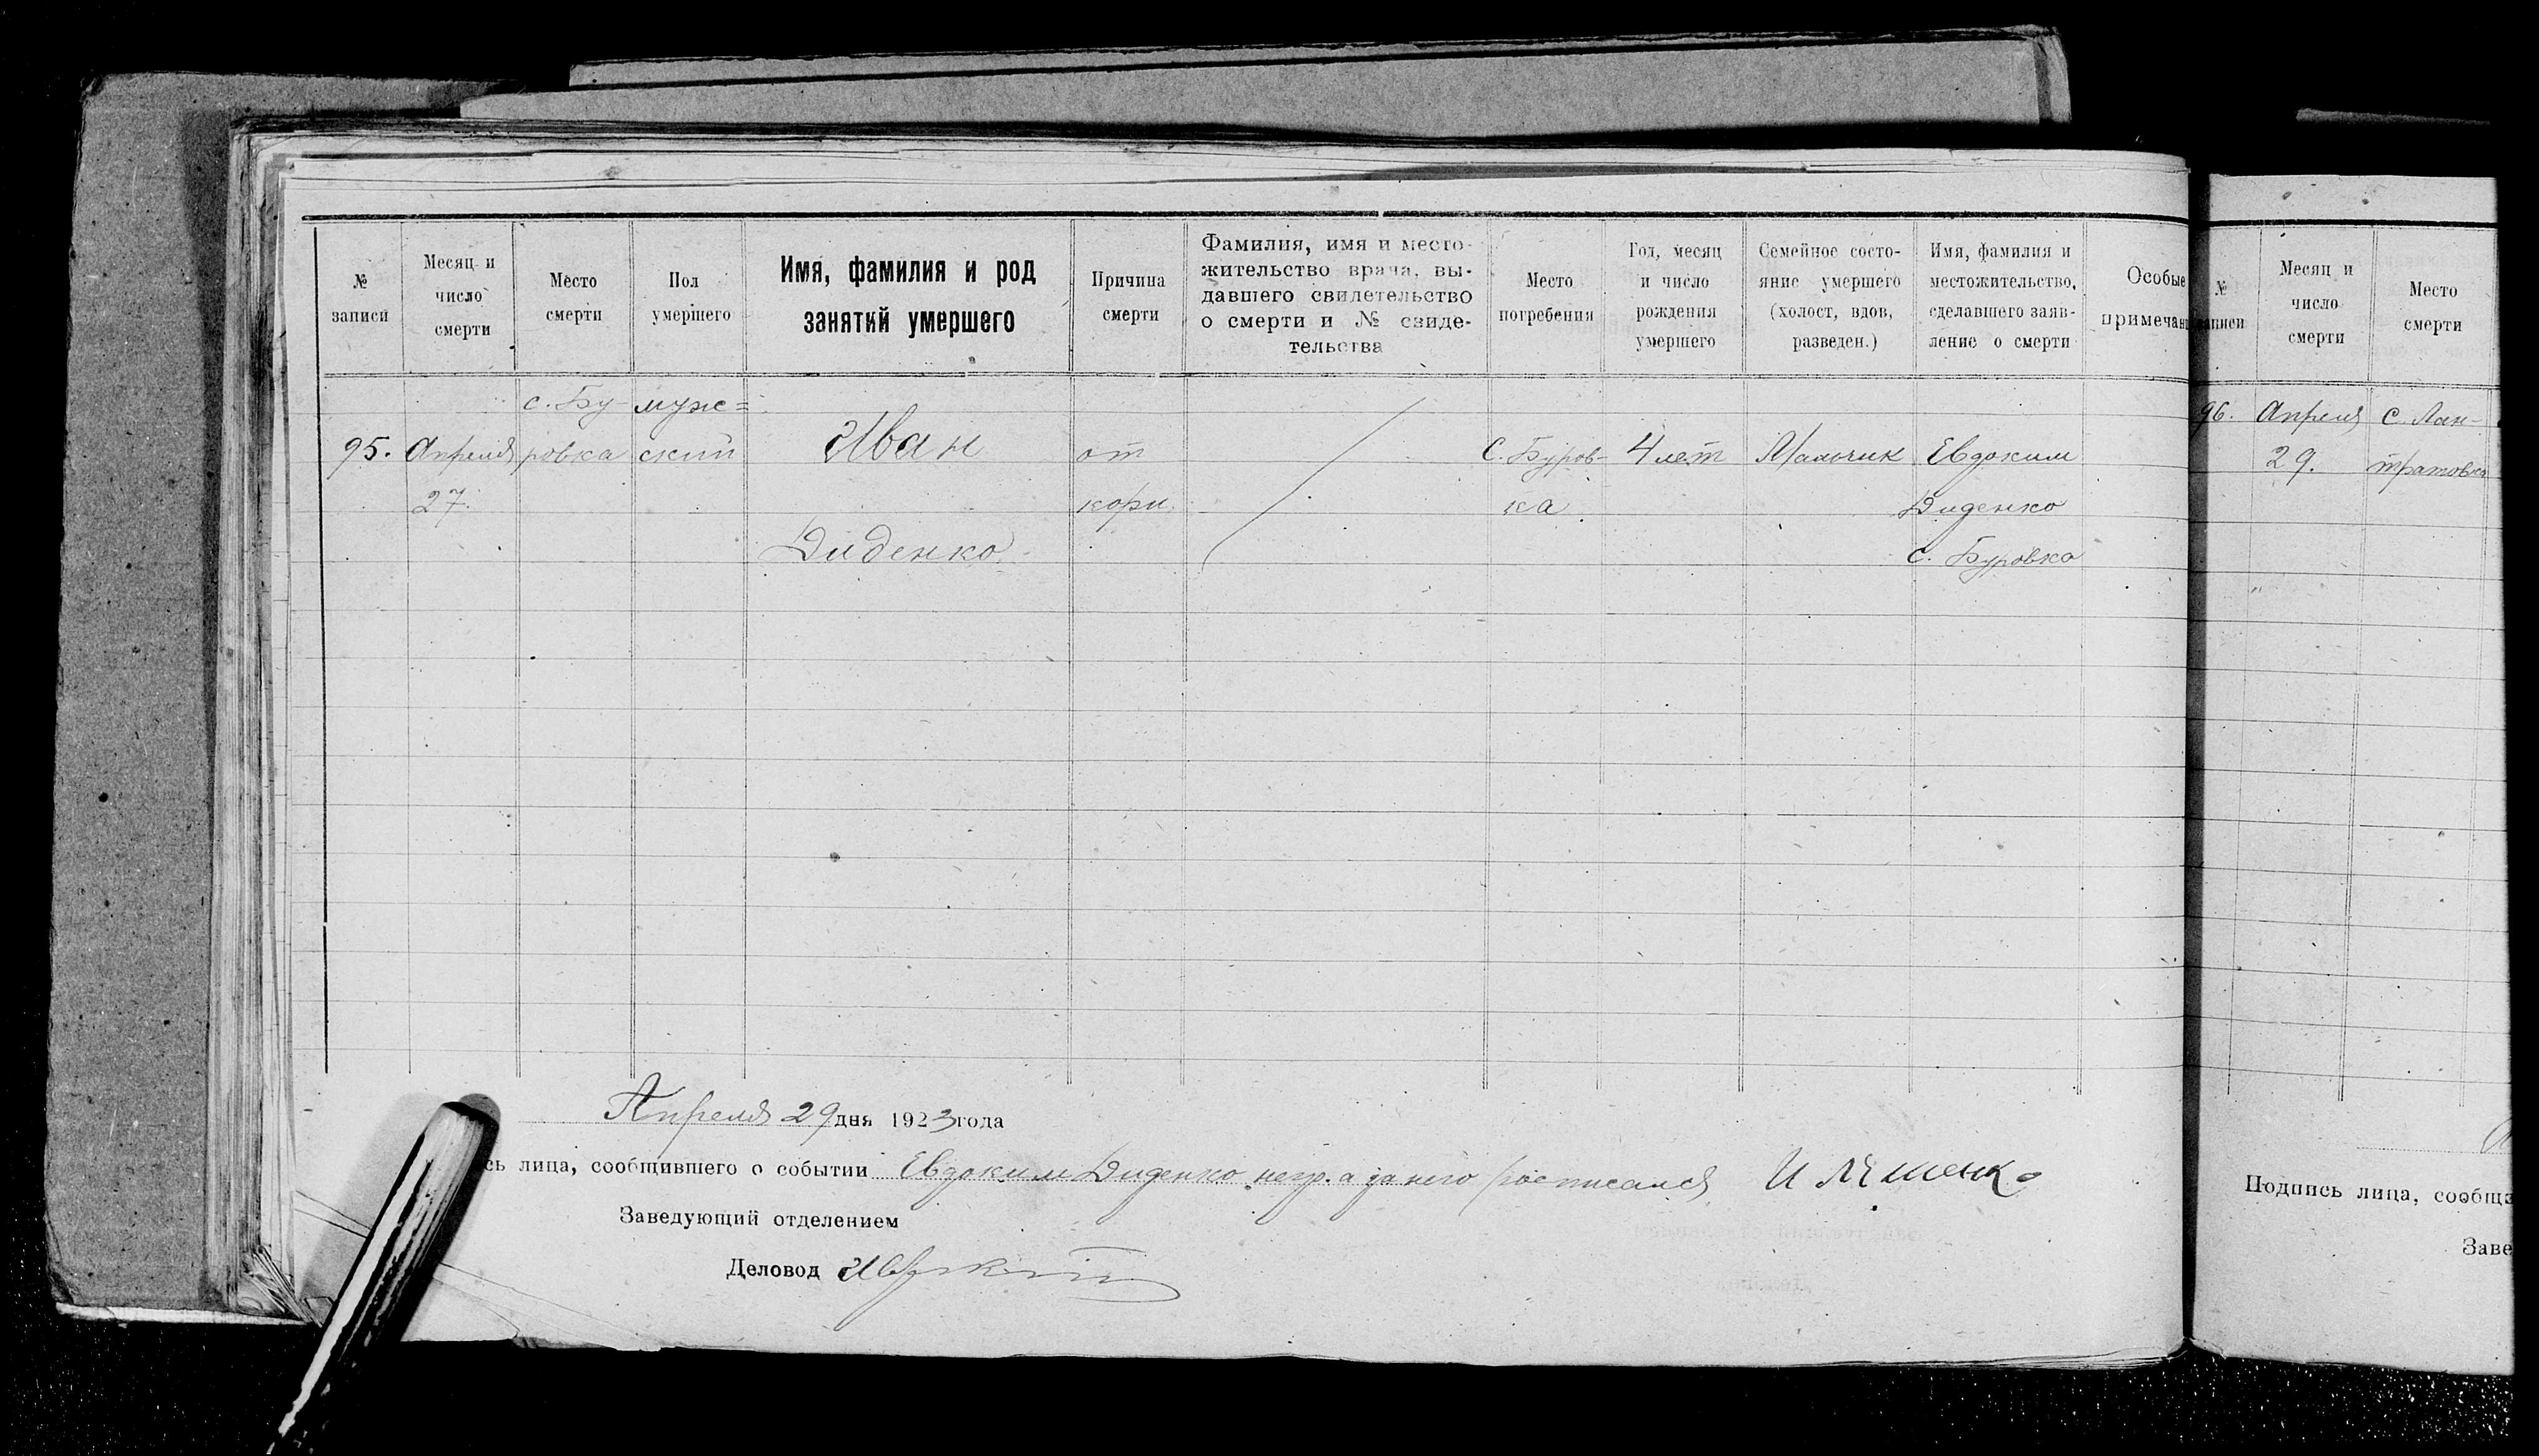 № записи
Месяц и число смерти
Место смерти
Пол умершего
Имя, фамилия и род занятий умершего
Причина смерти
Фамилия, имя и местожительство врача, выдавшего свидетельство о смерти и № свидетельства
Место погребения
Год, месяц и число рождения умершего
Семейное состояние умершего (холост, вдов, разведен.)
Имя, фамилия и местожительство, сделавшего заявление о смерти
Особые примечан
95.
Апреля
27.
с. Бу-
ровка
муж=
ский
Иван
Диденко
от
кори
С. Буров-
ка
4 лет
Мальчик
Евдоким
Диденко
с. Буровка
Апреля 29 дня 1923 года
сь лица, сообщившего о событии Евдоким Диденко негр. а за него росписался
Заведующий отделением
Деловод
№ записи
Месяц и число смерти
Место смерти
96.
Апреля
29.
с. Лан-
тратовка
Подпись лица, сообщ
Заве